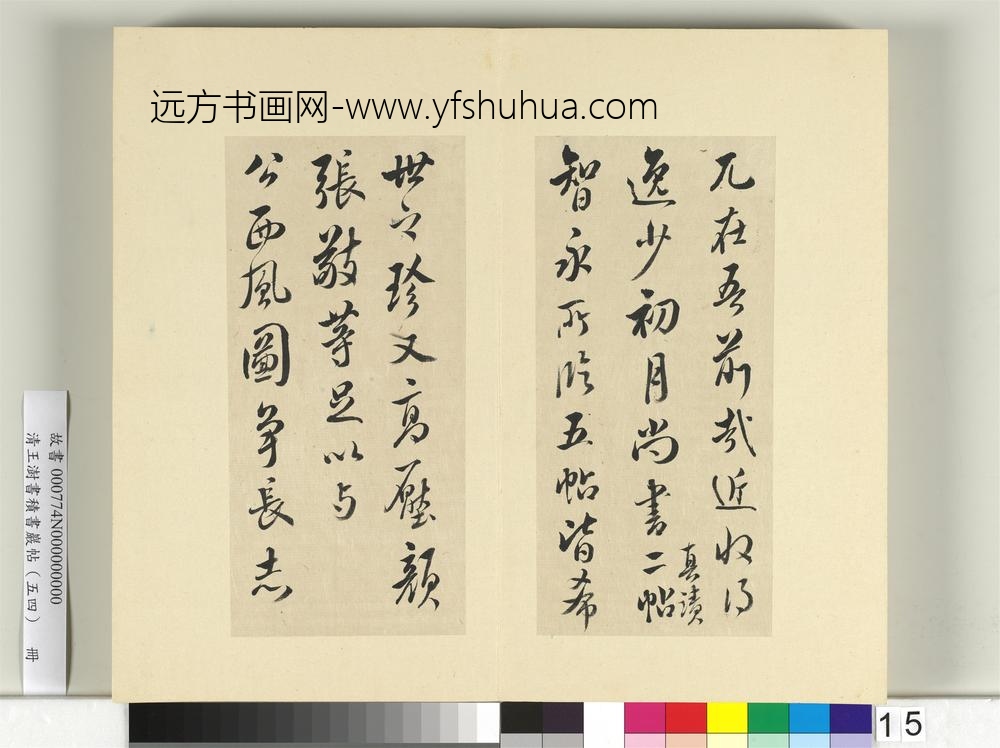 远方书画网-www.yfshuhua.com
兀在吾前哉近收得
逸少初月尚書二帖
真蹟
智永所臨五帖皆希
世之珍又高壓顏
張敬等足以与
公西風圖爭長志
故書 000774N000000000
清王澍書積書巖帖（五四） 冊
15